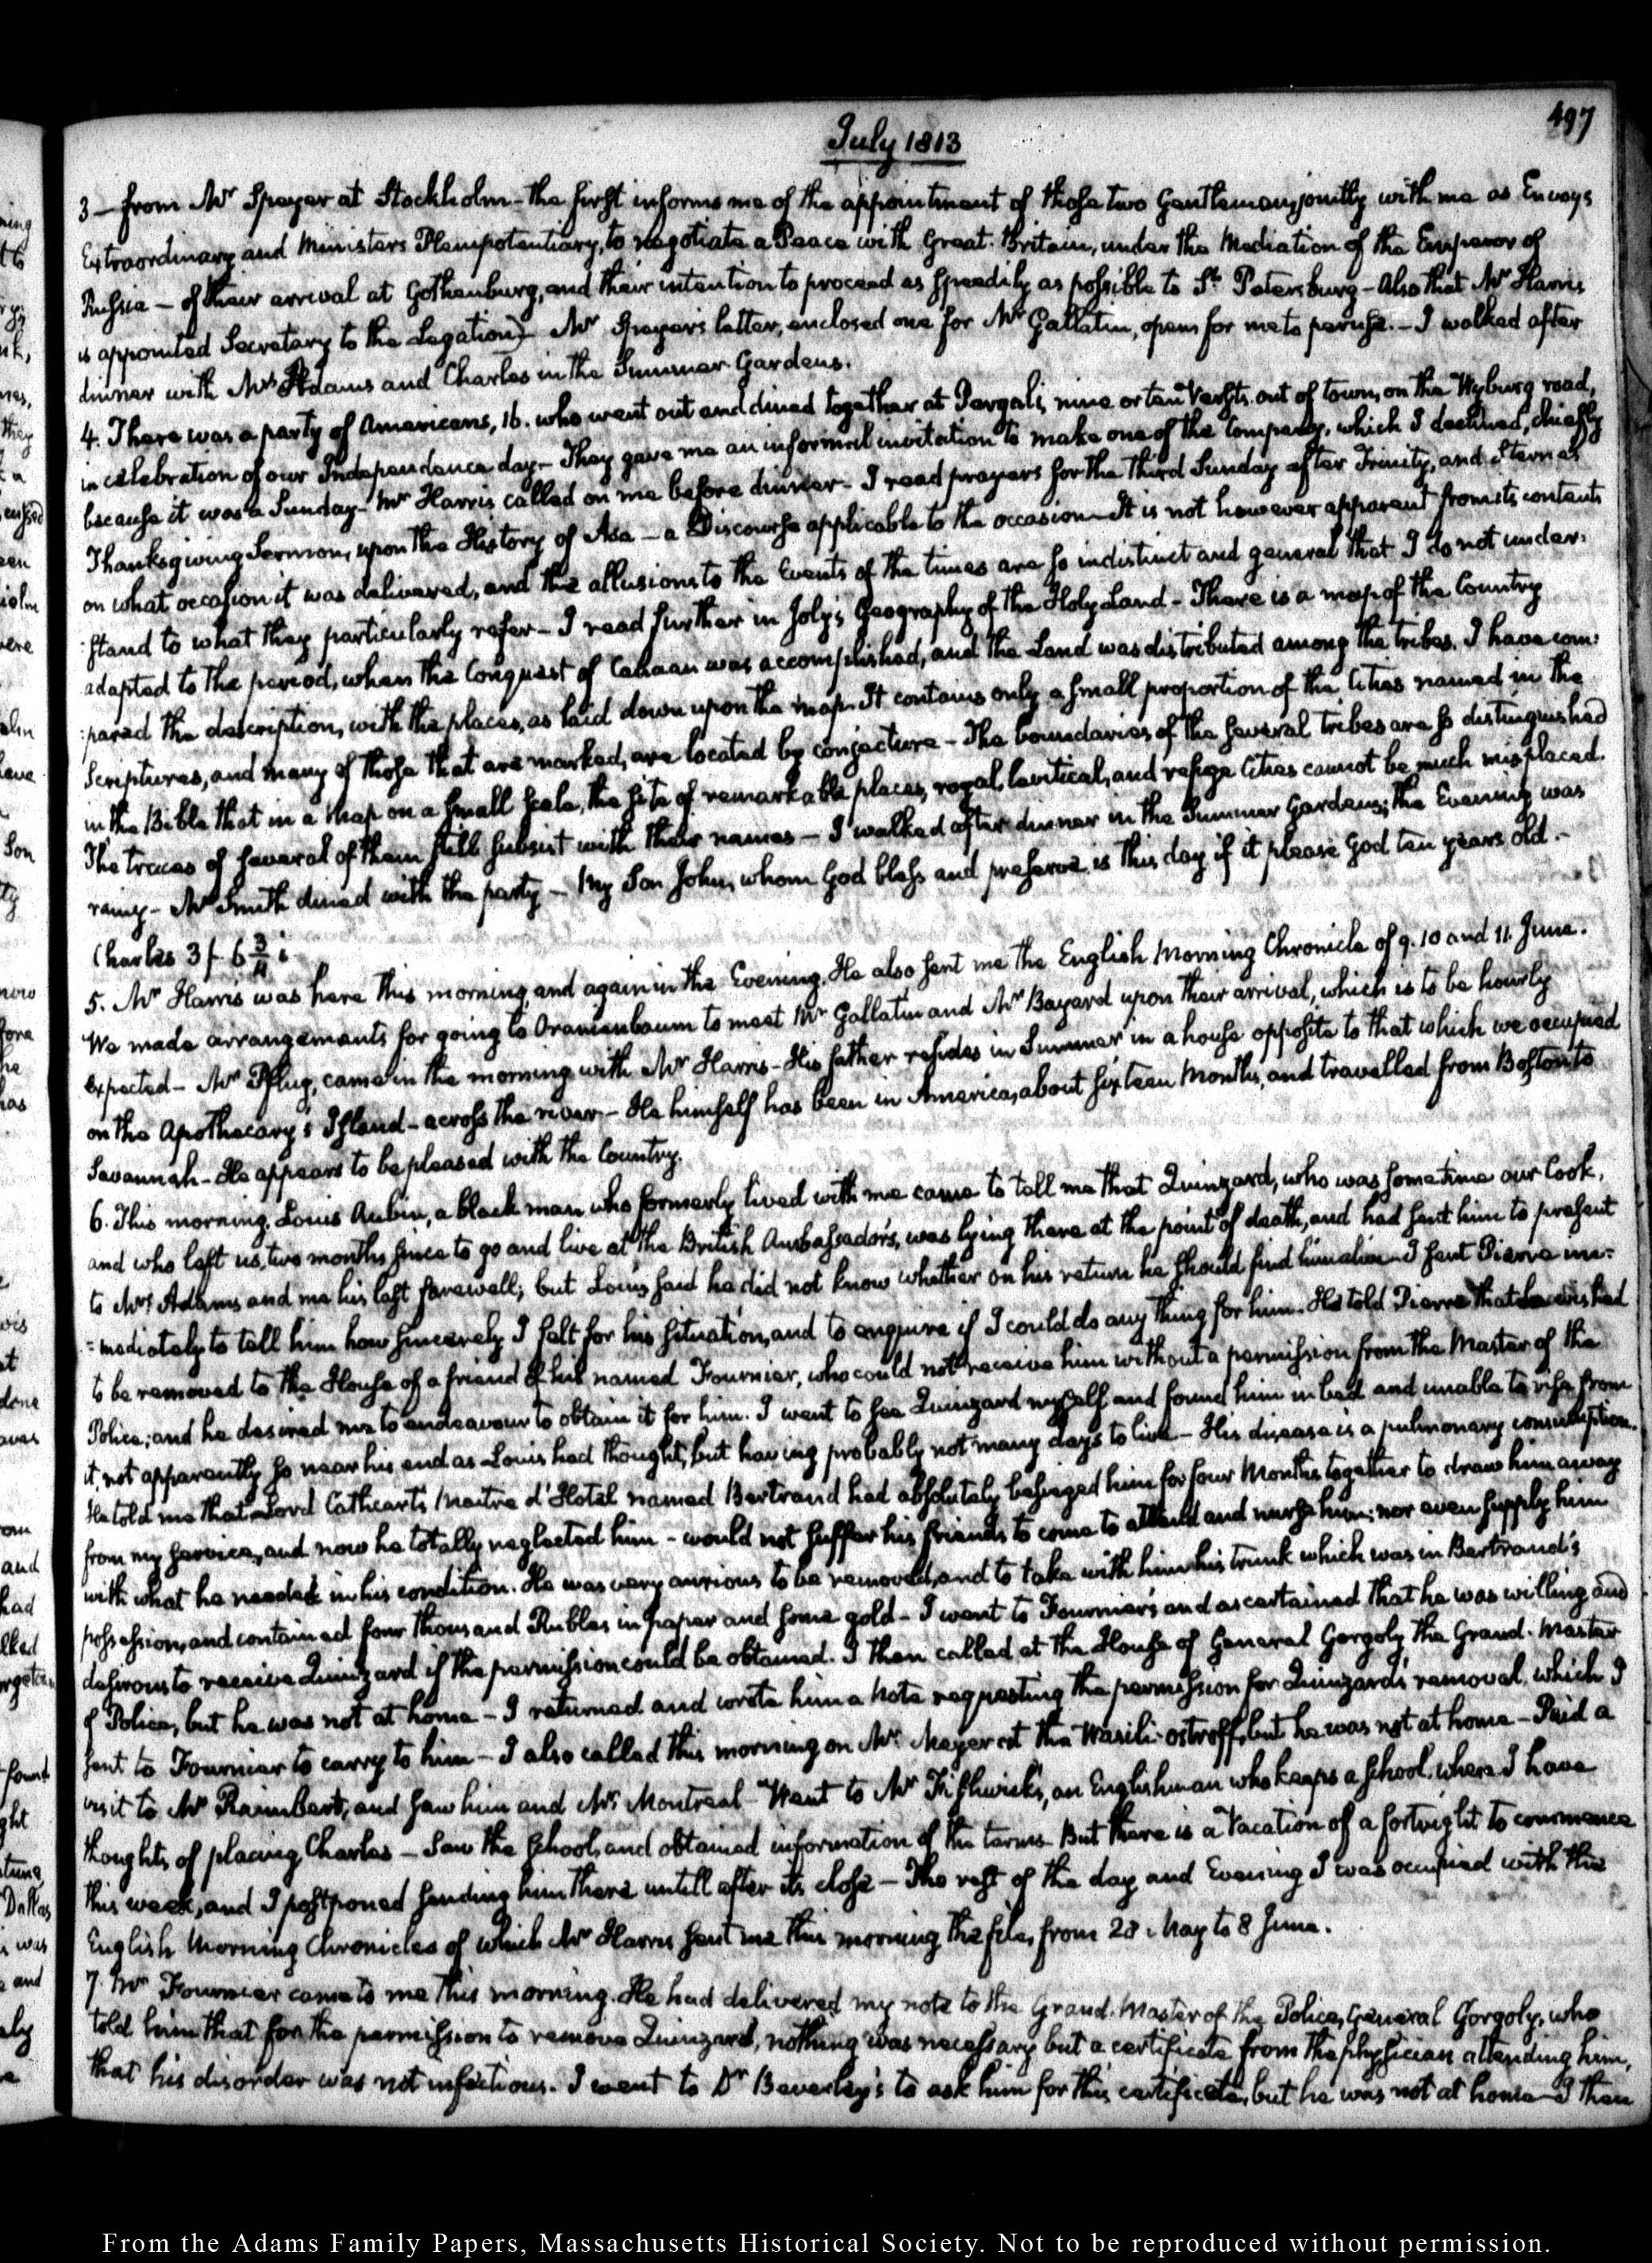 497
July 1813
3 — from Mr Speyer at Stockholm — the first informs me of the appointment of those two Gentlemen, jointly with me as Envoys
Extraordinary and Ministers Plenipotentiary, to negotiate a Peace with Great-Britain, under the Mediation of the Emperor of
Russia — of their arrival at Gothenburg, and their intention to proceed as speedily as possible to St. Petersburg — Also that Mr Harris
is appointed Secretary to the Legation — Mr Speyer's letter, enclosed one for Mr Gallatin, open for me to peruse. — I walked after
dinner with Mrs Adams and Charles in the Summer Gardens.
4. There was a party of Americans, 16. who went out and dined together at Pergali, nine or ten Versts out of town, on the Wyburg road,
in celebration of our Independence day — They gave me an informal invitation to make one of the Company, which I declined, chiefly
because it was a Sunday — Mr Harris called on me before dinner — I read prayers for the third Sunday after Trinity, and Sterne's
Thanksgiving Sermon, upon the History of Asa — a Discourse applicable to the occasion — It is not however apparent from its contents
on what occasion it was delivered, and the allusions to the Events of the times are so indistinct and general that I do not under-
-stand to what they particularly refer — I read further in Joly's Geography of the Holy Land — There is a map of the Country
adapted to the period, when the Conquest of Canaan was accomplished, and the Land was distributed among the tribes. I have com-
-pared the description, with the places, as laid down upon the map. It contains only a small proportion of the Cities named in the
Scriptures, and many of those that are marked, are located by conjecture — The boundaries of the several tribes are so distinguished
in the Bible that in a map on a small scale, the site of remarkable places, royal, levitical, and refuge Cities cannot be much misplaced.
The traces of several of them still subsist with their names — I walked after dinner in the Summer Gardens; the Evening was
rainy — Mr Smith dined with the party — My Son John, whom God bless and preserve, is this day if it please God ten years old. —
Charles 3 f. 6 3/4 i.
5. Mr Harris was here this morning, and again in the Evening. He also sent me the English Morning Chronicle of 9. 10 and 11. June.
We made arrangements for going to Oranienbaum to meet Mr Gallatin and Mr Bayard upon their arrival, which is to be hourly
expected — Mr Pflug, came in the morning with Mr Harris — His father resides in Summer in a house opposite to that which we occupied
on the Apothecary's Island — across the river — He himself has been in America, about sixteen Months, and travelled from Boston to
Savannah — He appears to be pleased with the Country.
6. This morning, Louis Aubin, a black man who formerly lived with me came to tell me that Quinzard, who was some time our Cook,
and who left us, two months since to go and live at the British Ambassador's, was lying there at the point of death, and had sent him to present
to Mrs Adams and me his last farewell; but Louis said he did not know whether on his return he should find him alive — I sent Pierre im-
-mediately to tell him how sincerely I felt for his situation, and to enquire if I could do any thing for him. He told Pierre that he wished
to be removed to the House of a friend of his named Fournier, who could not receive him without a permission from the Master of the
Police; and he desired me to endeavour to obtain it for him. I went to see Quinzard myself and found him in bed and unable to rise from
it, not apparently so near his end as Louis had thought, but having probably not many days to live — His disease is a pulmonary consumption.
He told me that Lord Cathcart's Maitre d'Hotel named Bertrand had absolutely besieged him for four Months together to draw him away
from my service, and now he totally neglected him — would not suffer his friends to come to attend and nurse him; nor even supply him
with what he needed in his condition. He was very anxious to be removed, and to take with him his trunk which was in Bertrand's
possession, and contained four thousand Rubles in paper and some gold — I went to Fournier's and ascertained that he was willing and
desirous to receive Quinzard if the permission could be obtained. I then called at the House of General Gorgoly the Grand-Master
of Police, but he was not at home — I returned and wrote him a Note requesting the permission for Quinzard's removal, which I
sent to Fournier to carry to him — I also called this morning on Mr. Meyer at the Wasili-ostroff, but he was not at home — Paid a
visit to Mr Raimbert, and saw him and Mr Montreal — Went to Mr Fishwick's, an Englishman who keeps a school, where I have
thoughts of placing Charles — Saw the School, and obtained information of the terms — But there is a Vacation of a fortnight to commence
this week, and I postponed sending him there untill after its close — The rest of the day and Evening I was occupied with the
English Morning Chronicles of which Mr Harris sent me this morning the file, from 28 May to 8 June.
7. Mr Fournier came to me this morning. He had delivered my note to the Grand-Master of the Police, General Gorgoly, who
told him that for the permission to remove Quinzard, nothing was necessary but a certificate from the physician attending him,
that his disorder was not infectious. I went to Dr Beverley's to ask him for this certificate, but he was not at home — I then
From the Adams Family Papers, Massachusetts Historical Society. Not to be reproduced without permission.